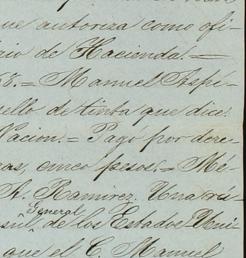 que autoriza como ofi-
rio de Hacienda. =
58. = Manuel Aspí-
sello de tinta que dice:
Nacion. = Pagó por dere-
as, cinco pesos. = Mé-
R. Ramirez. Una rú-
General
sul de los Estados Uni-
que el C. Manuel